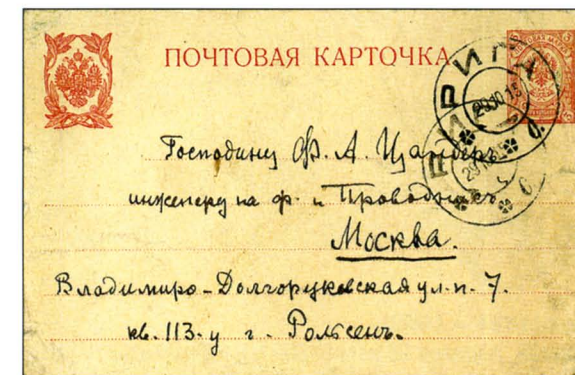 ПОЧТОВАЯ КАРТОЧКА
РИГА
29.10.15
Господину Ф. А. Цандеръ
инженеру на ф. "Проводникъ"
Москва.
Владимиро-Долгоруковская ул. п. 7.
кв. 113. у г.